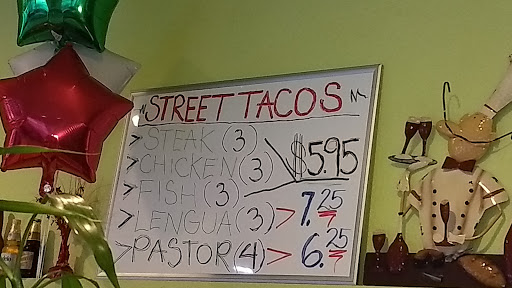 STREET TACOS
> STEAK (3)
> CHICKEN (3) $5.95
> FISH (3)
> LENGUA (3) > 7.25
> PASTOR (4) > 6.25